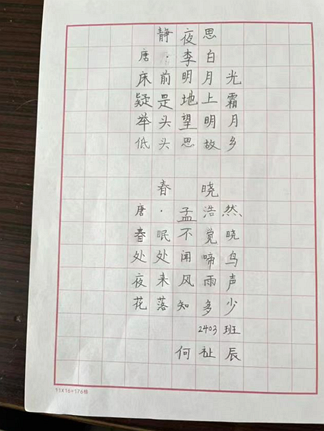 静夜思
唐·李白
床前明月光
疑是地上霜
举头望明月
低头思故乡
春晓
唐·孟浩然
春眠不觉晓
处处闻啼鸟
夜来风雨声
花落知多少
2403班
何祉辰